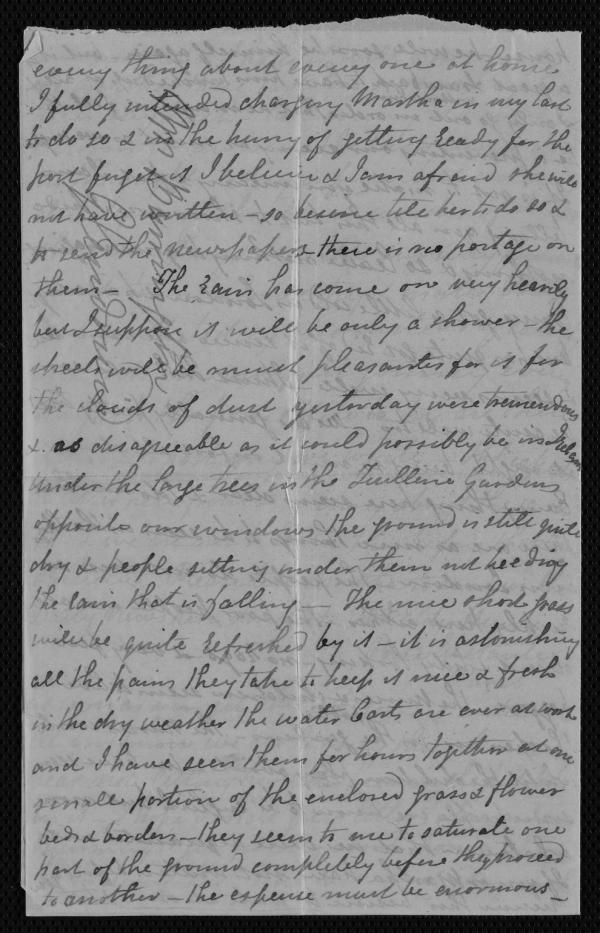 every thing about every one at home
I fully intended charging Martha in my last
to do so & in the hurry of getting ready for the
post forgot it I believe & I am afraid she will
not have written - so desire tell her to do so &
to send the newspapers there is no postage on
them - The rain has come on very heavily
but I suppose it will be only a shower - the
streets will be much pleasanter for it for
the clouds of dust yesterday were tremendous
& as disagreeable as it could possibly be in
under the large trees in the Tuillerie Gardens
opposite our windows the ground is still quite
dry & people sitting under them not heeding
the rain that is falling - The nice short grass
will be quite refreshed by it - it is astonishing
all the pains they take to keep it nice & fresh
in the dry weather the water Carts are ever at work
and I have seen them for hours together at one
small portion of the enclosed grass & flower
beds & borders - they seem to me to saturate one
part of the ground completely before they proceed
to another - the expense must be enormous -